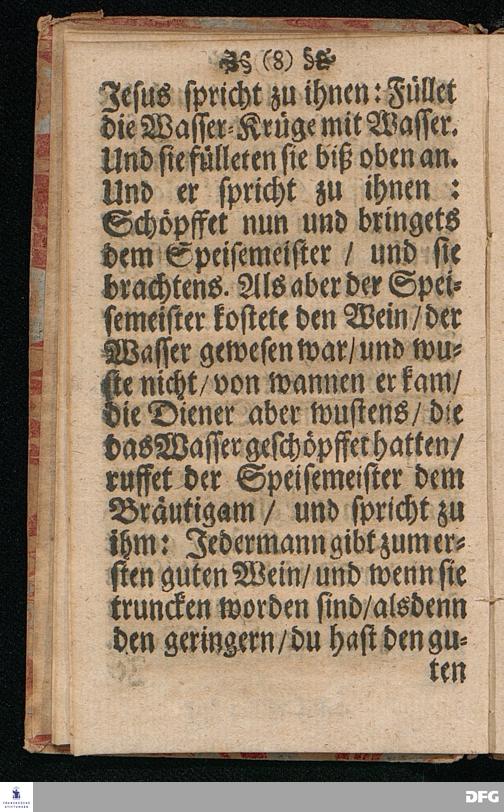 (8)
Jesus spricht zu ihnen: Füllet
die Wasser-Krüge mit Wasser.
Und sie fülleten sie biß oben an.
Und er spricht zu ihnen :
Schöpffet nun und bringets
dem Speisemeister / und sie
brachtens. Als aber der Spei-
semeister kostete den Wein/ der
Wasser gewesen war/ und wu-
ste nicht/ von wannen er kam/
die Diener aber wustens/ die
das Wasser geschöpffet hatten/
ruffet der Speisemeister dem
Bräutigam / und spricht zu
ihm: Jedermann gibt zum er-
sten guten Wein/ und wenn sie
truncken worden sind/ alsdenn
den geringern/ du hast den gu-
ten
FRANCKESCHE
STIFTUNGEN
DFG